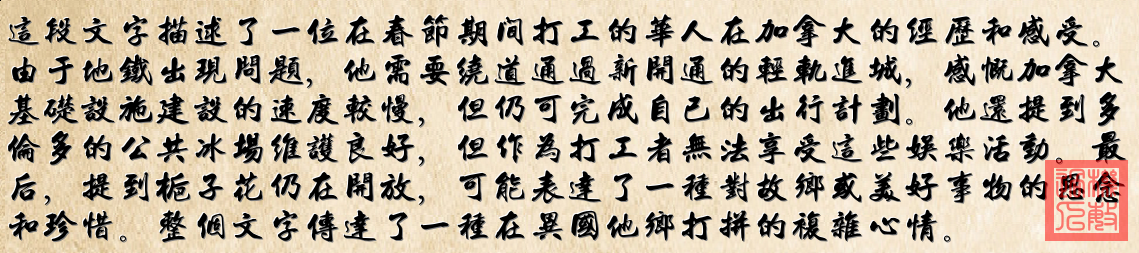 這段文字描述了一位在春節期间打工的華人在加拿大的經歷和感受。
由于地鐵出現問題，他需要繞道通過新開通的輕軌進城，感慨加拿大
基礎設施建設的速度較慢，但仍可完成自己的出行計劃。他還提到多
倫多的公共冰場維護良好，但作為打工者無法享受這些娛樂活動。最
后，提到栀子花仍在開放，可能表達了一種對故鄉或美好事物的思念
和珍惜。整個文字傳達了一種在異國他鄉打拼的複雜心情。